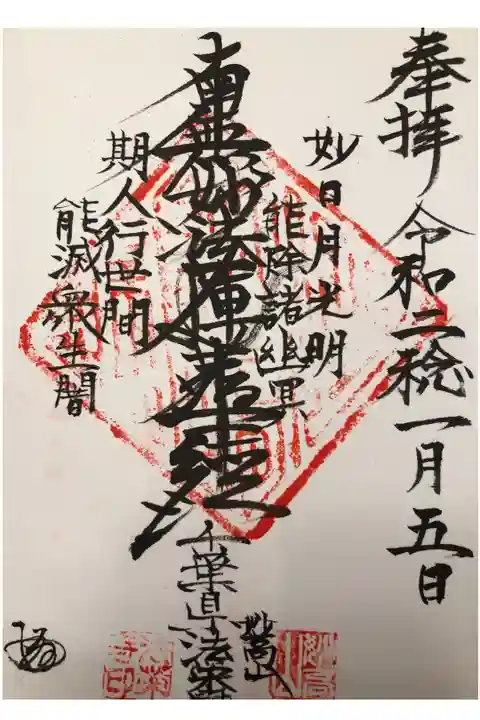 奉拝 令和二稔一月五日
妙日月光明
能除諸幽冥
南無妙法蓮華経
期人行世間
能滅衆生闇
妙高山
千葉県法